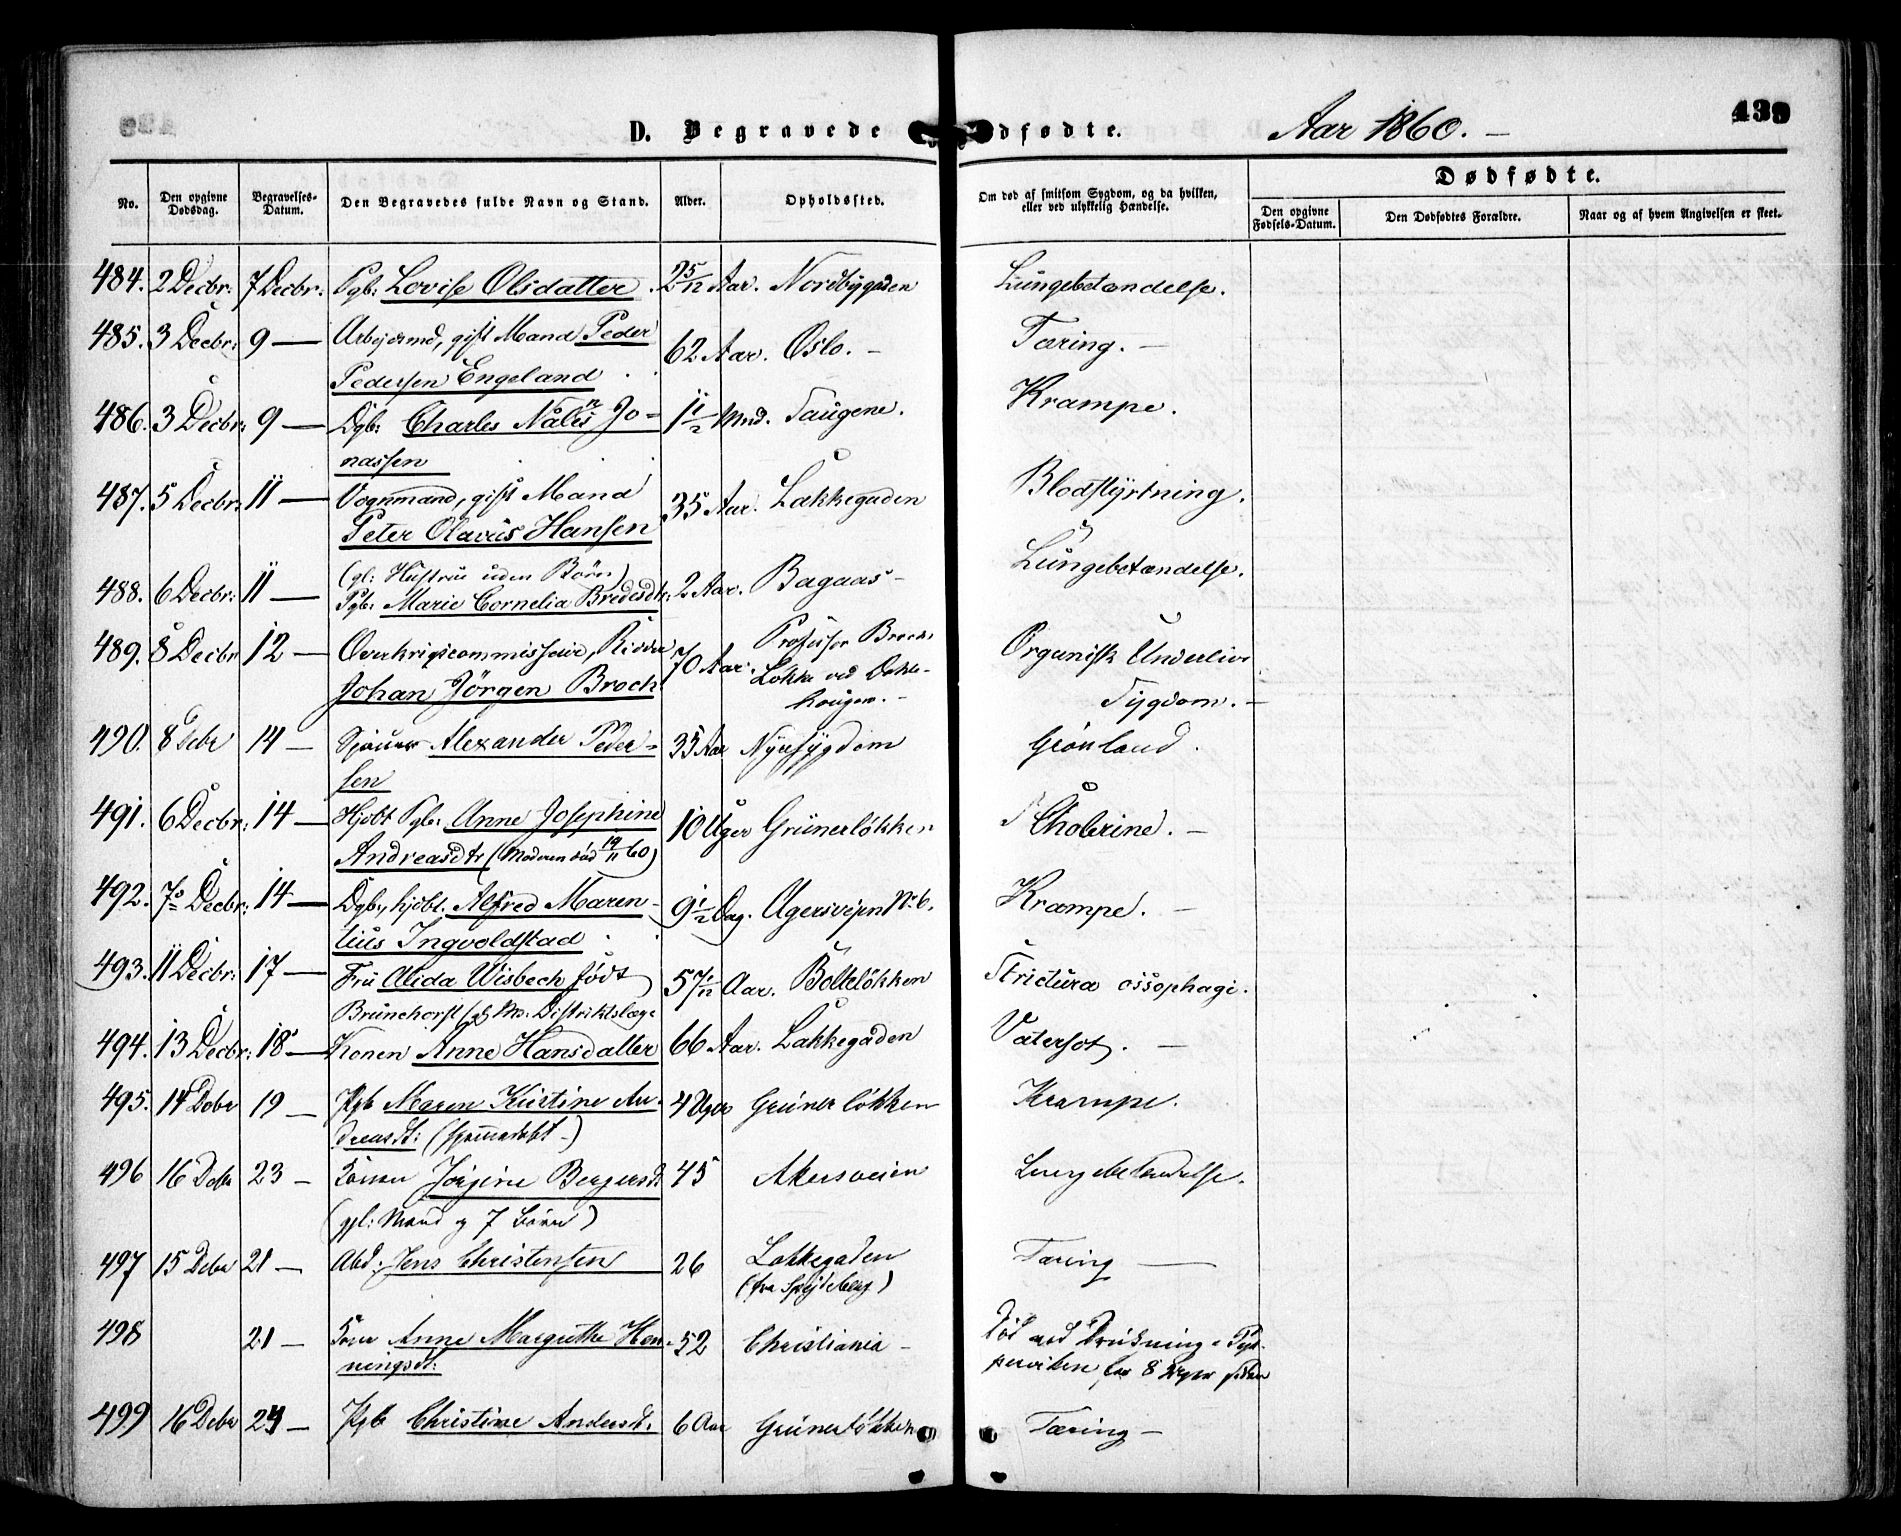 D. Begravede
dfødte.
Aar 1860. –
439
No.
Den opgivne Dødsdag.
Begravelses-Datum.
Den Begravedes fulde Navn og Stand.
Alder.
Opholdssted.
Om død af smitsom Sygdom, og da hvilken, eller ved ulykkelig Hændelse.
Dødfødte.
Den opgivne Fødsels-Datum.
Den Dødfødtes Forældre.
Naar og af hvem Angivelsen er skeet.
484. 2 Decbr: 7 Decbr: Pgb: Lovise Olsdatter. 2 5/12 Aar. Nordbygaden Lungebetændelse.
485. 3 Decbr: 9 — Arbejdsmd, gift Mand Peder
Pedersen Engeland 62 Aar. Oslo. – Tæring. –
486. 3 Decbr: 9 — Dgb: Charles Jo-
nassen 1 1/2 Mnd. Taugene. Krampe.
487. 5 Decbr: 11 — Vognmand, gift Mand
Peter Olavus Hansen 35 Aar. Lakkegaden Blodstyrtning.
488. 6 Decbr: 11 — (gl: Hustru uden Børn)
Pgb: Marie Cornelia Bredesdtr: 2 Aar. Bagaas – Lungebetændelse.
489. 8 Decbr 12 — Overkrigscommissair, Ridder
Johan Jörgen Broch 70 Aar. Professor Brochs
Løkke ved
–
Organisk Underlivs
Sygdom. –
490. 8 Debr 14 – Sjouer Alexander Peder-
sen 35 Aar Nyresygdom Grönland.
491. 6 Decbr: 14 — Hjdbt Pgb: Anne Josephine
Andreasdtr (Moderen død 19/11 60) 10 Uger Grünerløkken Cholerine. –
492. 7 Decbr: 14 — Dgb., hjdbt. Alfred Maren-
tius Ingvoldstad 9 1/2 Dag. Agersvejen No 6. Krampe. –
493. 11 Decbr: 17 — Fru Alida Wisbech født
Brunchorst Distriktslæge 57 1/12 Aar. Bolteløkken Strictura ossophagi.
494. 13 Decbr: 18 — Konen Anne Hansdatter 66 Aar. Lakkegaden Vatersot. –
495. 14 Debr 19 – Pgb Maren Kirstine An-
dreasdt: (hjemmedøbt –) 4 Uger Grüner løkken Krampe.
496 16 Debr 23 – Konen Jörgine Bergersdt
(gjl: Mand og 7 Börn) 45 Akersveien Lungebetændelse.
497 15 Debr 21 – Abd. Jens Christensen 26 Lakkegaden
(fra Spydeberg) Tæring —
498 21 – Konen Anne Margrethe Hen-
ningsdt: 52 Christiania – Död ved Drukning i Pip-
perviken for 8 Uger siden
499 16 Debr 24 – Pgb Christine Andersdt. 6 Aar Grünerløkken Tæring –